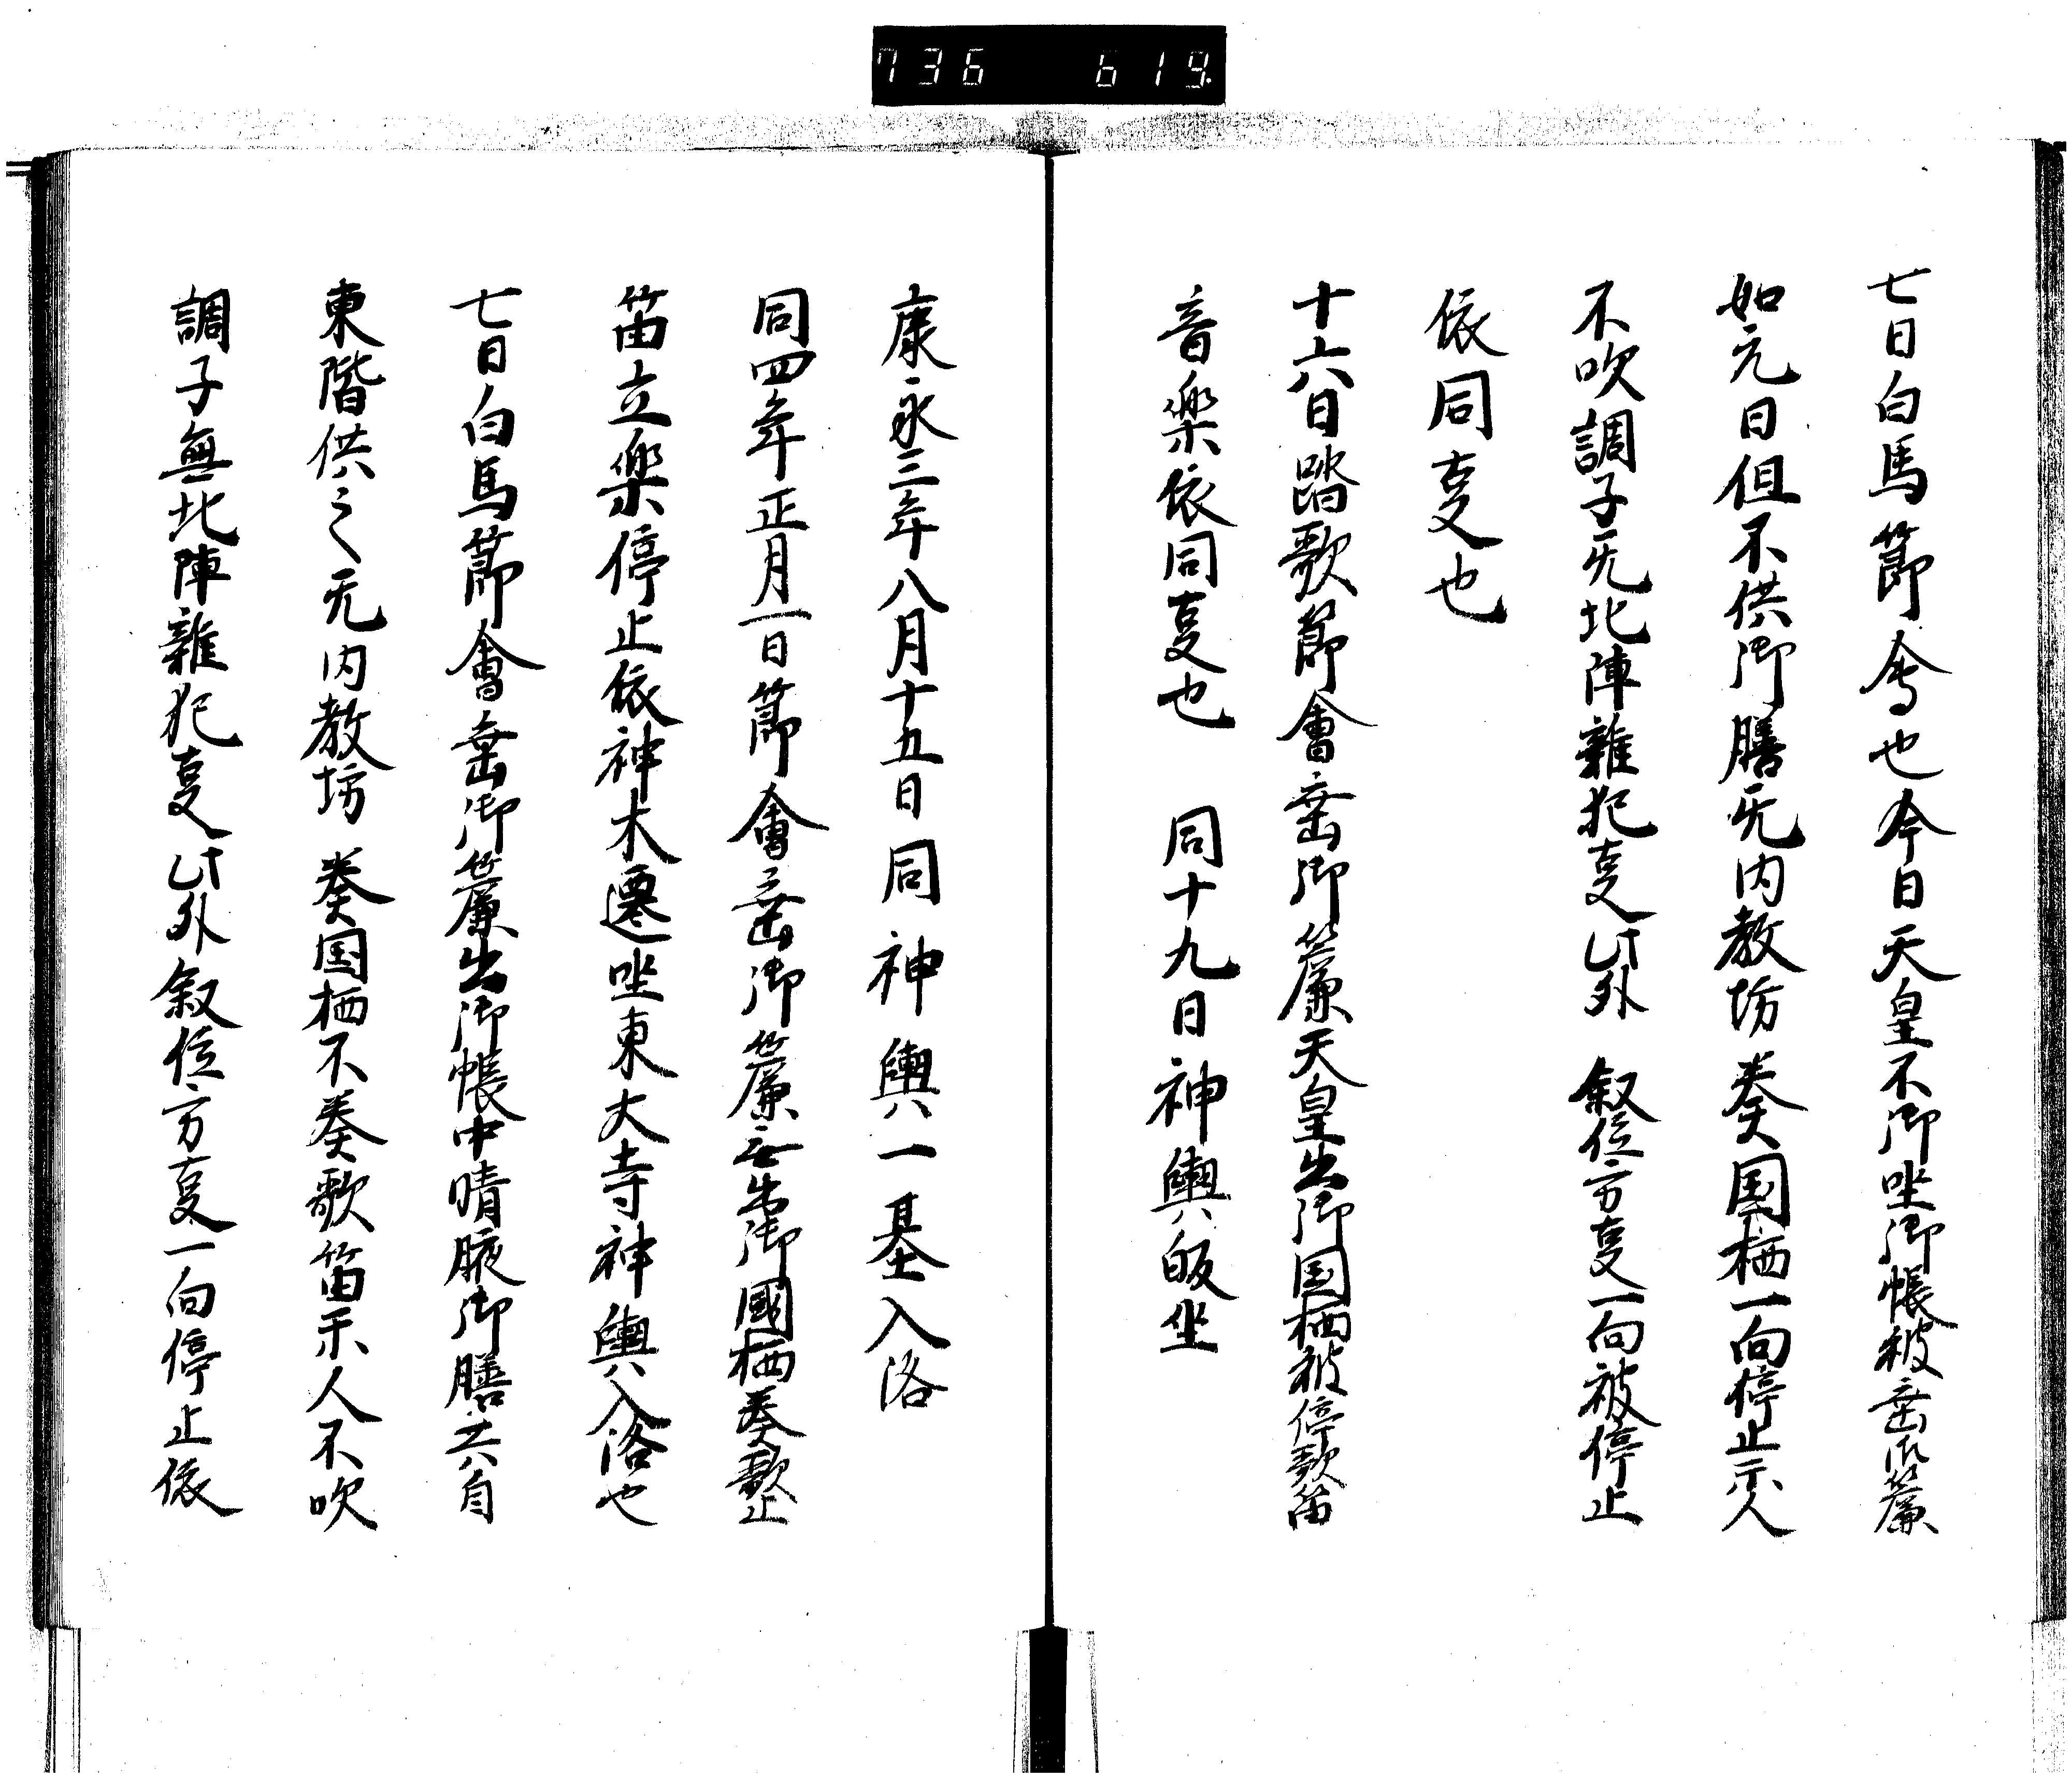 736 619
七日白馬節会也今日天皇不御坐御帳被垂御簾
如元日但不供御膳无内教坊奏国栖一向停止示人
不吹調子无北陣雑犯事此外叙位方事一向被停止
依同事也
十六日踏歌節會垂御簾天皇出御国栖被停歌笛
音楽依同事也 同十九日神輿皈坐
康永三年八月十五日同神輿一基入洛
同四年正月一日節會垂御簾無出御國栖奏歌止
笛立楽停止依神木遷坐東大寺神輿入洛也
七日白馬節會垂御簾出御帳中晴腋御膳共自
東階供之无内教坊奏国栖不奏歌笛示人不吹
調子無北陣雑犯事此外叙位方事一向停止依